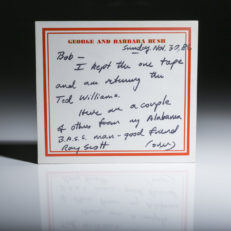 GEORGE AND BARBARA BUSH
Sunday Nov. 30, 86
Bob —
I kept the one tape
and am returning the
Ted Williams.
Here are a couple
of others from my Alabama
B.A.S.S. man - good friend
Ray Scott
(over)